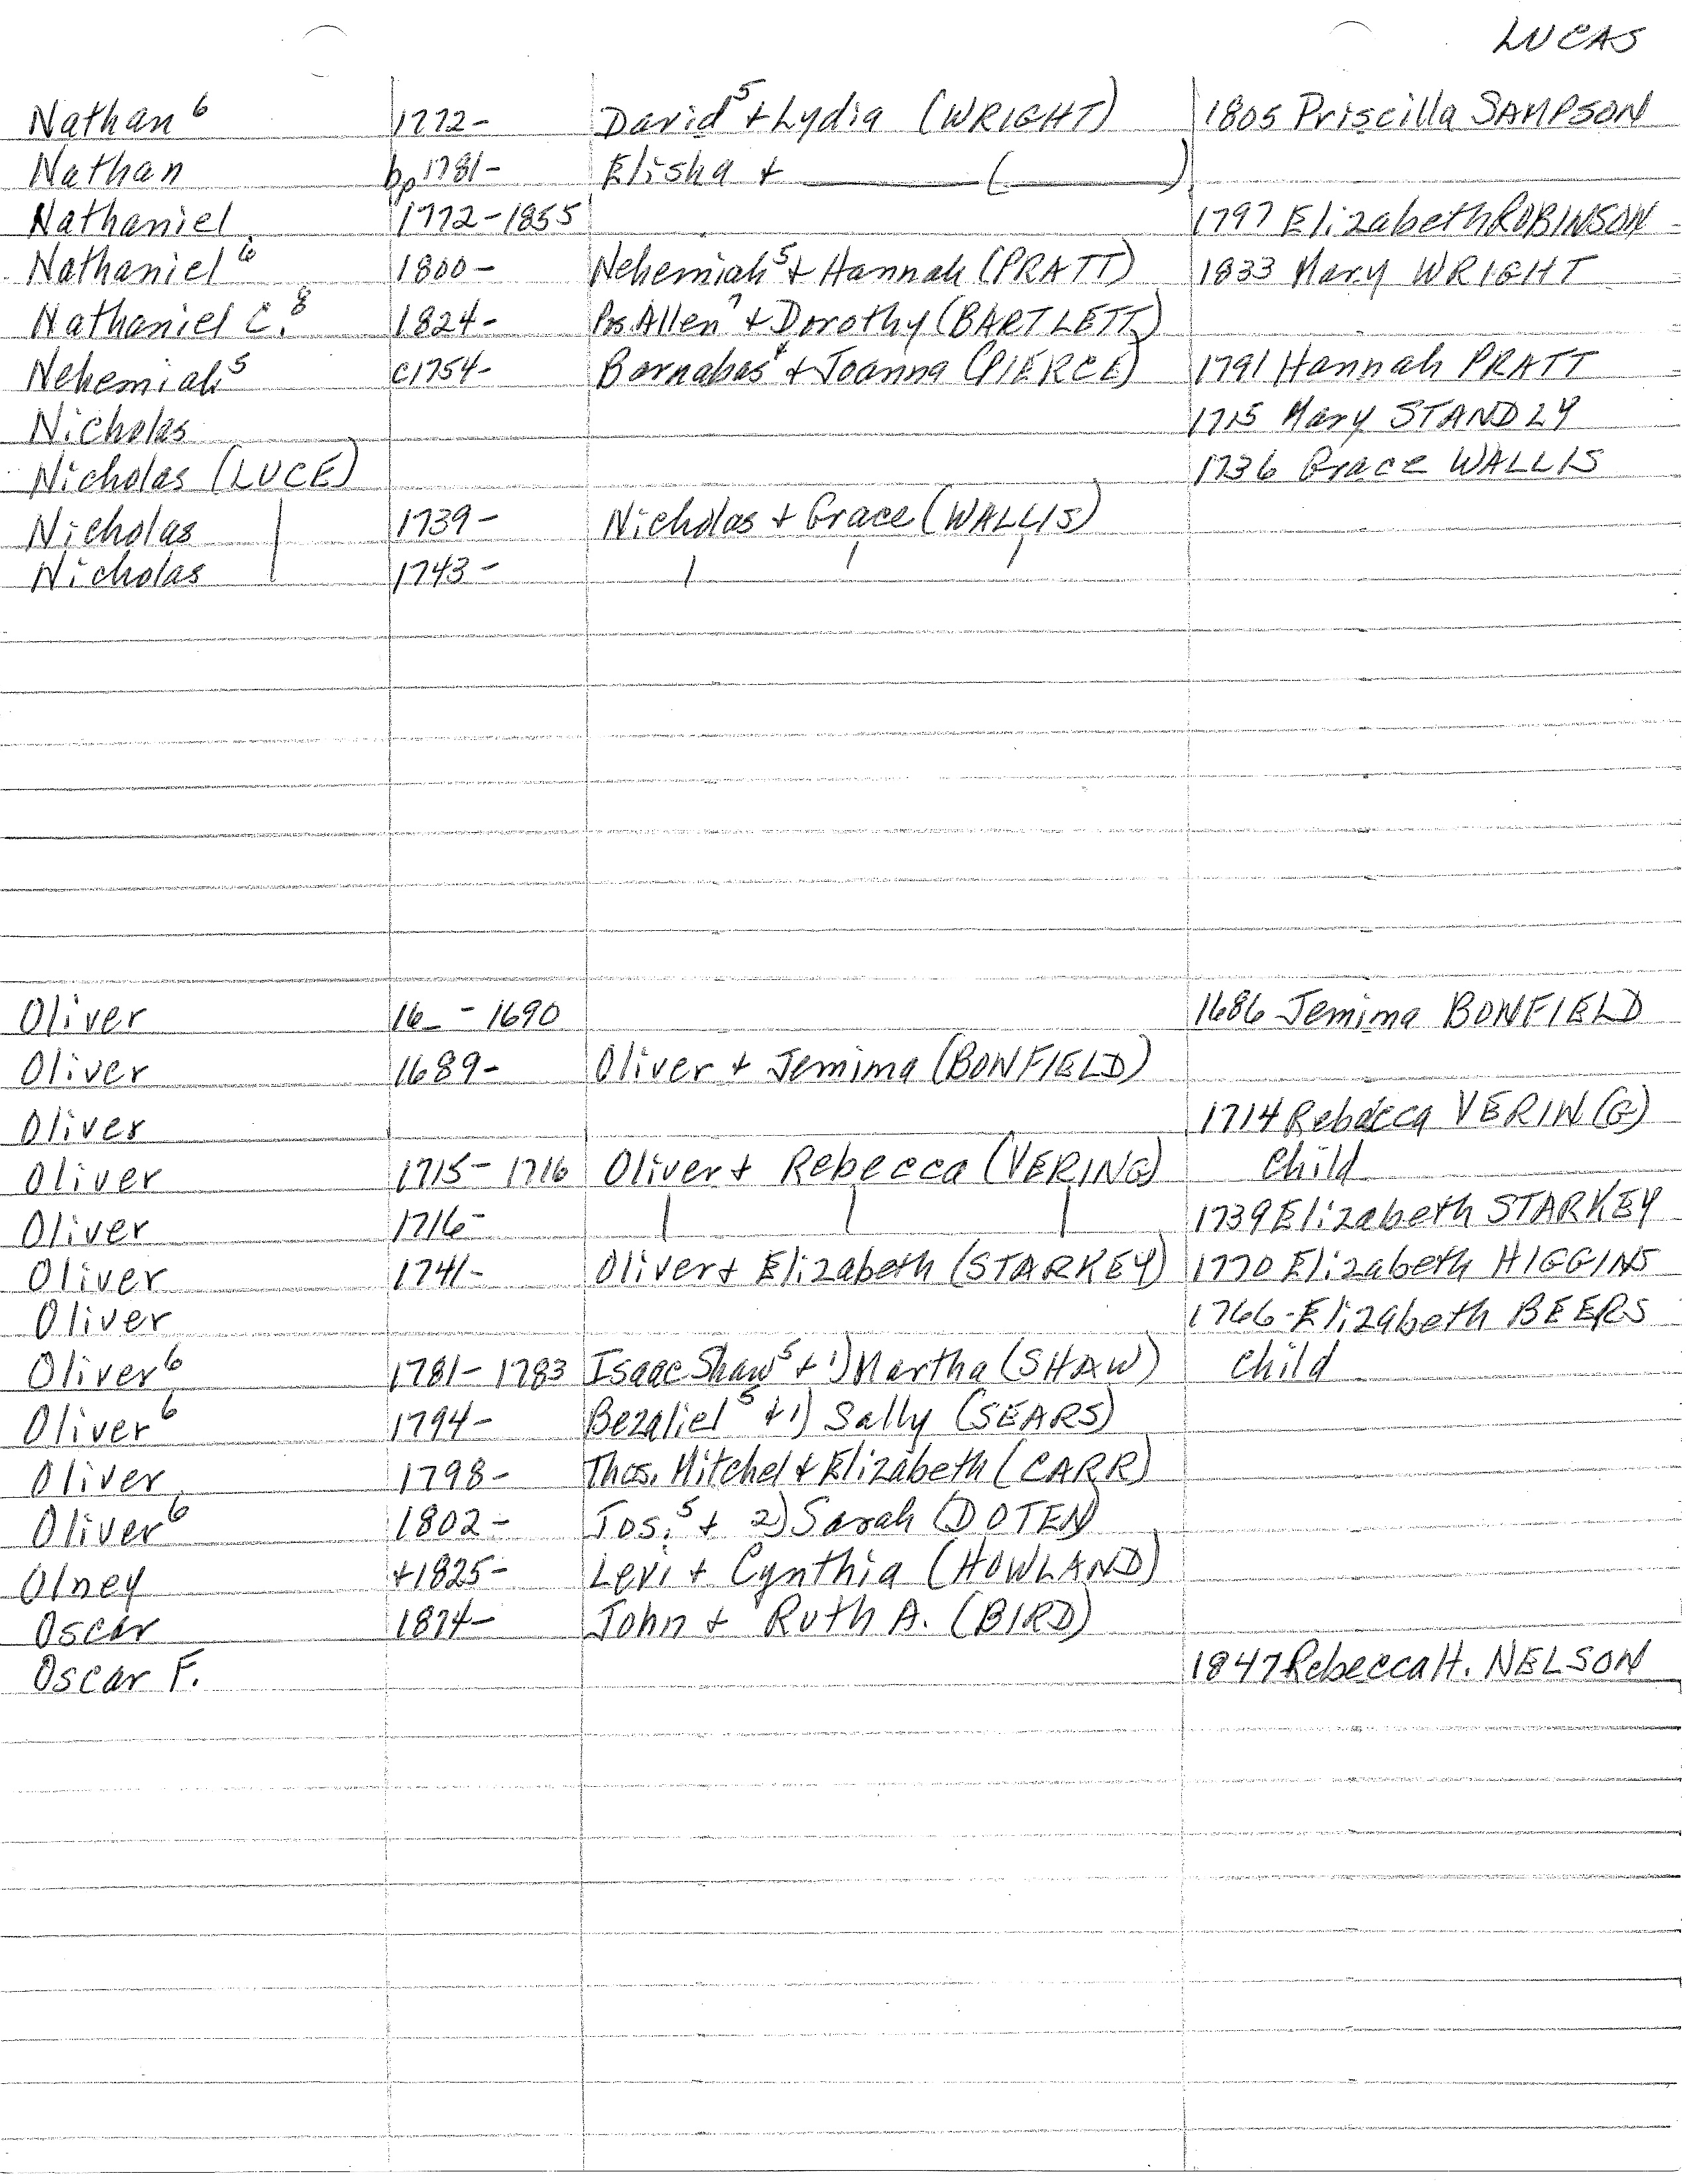 LUCAS
Nathan⁶ 1772- David⁵ + Lydia (WRIGHT) 1805 Priscilla SAMPSON
Nathan bp 1781- Elisha + ______ (______)
Nathaniel 1772-1855 1797 Elizabeth ROBINSON
Nathaniel⁶ 1800- Nehemiah⁵ + Hannah (PRATT) 1833 Mary WRIGHT
Nathaniel C.⁸ 1824- Allen⁷ + Dorothy (BARTLETT)
Nehemiah⁵ c1754- Barnabas⁴ + Joanna (PIERCE) 1791 Hannah PRATT
Nicholas 1715 Mary STANDLY
Nicholas (LUCE) 1736 Grace WALLIS
Nicholas | 1739- Nicholas + Grace (WALLIS)
Nicholas | 1743- | | |
Oliver 16_ - 1690 1686 Jemima BONFIELD
Oliver 1689- Oliver + Jemima (BONFIELD)
Oliver 1714 Rebecca VERIN(G)
Oliver 1715-1716 Oliver + Rebecca (VERING) child
Oliver 1716- | | | 1739 Elizabeth STARKEY
Oliver 1741- Oliver + Elizabeth (STARKEY) 1770 Elizabeth HIGGINS
Oliver 1766 - Elizabeth BEERS
Oliver⁶ 1781-1783 Isaac Shaw⁵ + 1) Martha (SHAW) child
Oliver⁶ 1794- Bezaliel⁵ + 1) Sally (SEARS)
Oliver 1798- Thos. Mitchel + Elizabeth (CARR)
Oliver⁶ 1802- Jos.⁵ + 2) Sarah (DOTEN)
Olney +1825- Levi + Cynthia (HOWLAND)
Oscar 1874- John + Ruth A. (BIRD)
Oscar F. 1847 Rebecca H. NELSON